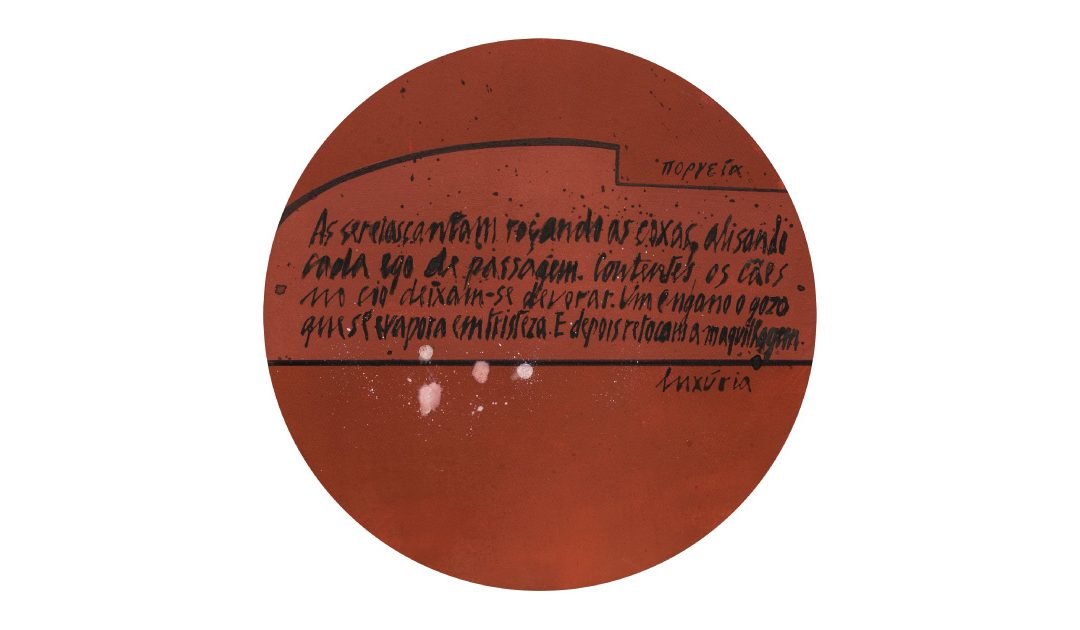 πορνεία
As sereias cantam roçando as coxas, alisando
cada ego de passagem. Contentes, os cães
no cio deixam-se devorar. Um engano o gozo
que se evapora em tristeza. E depois retocam a maquillagem.
luxúria